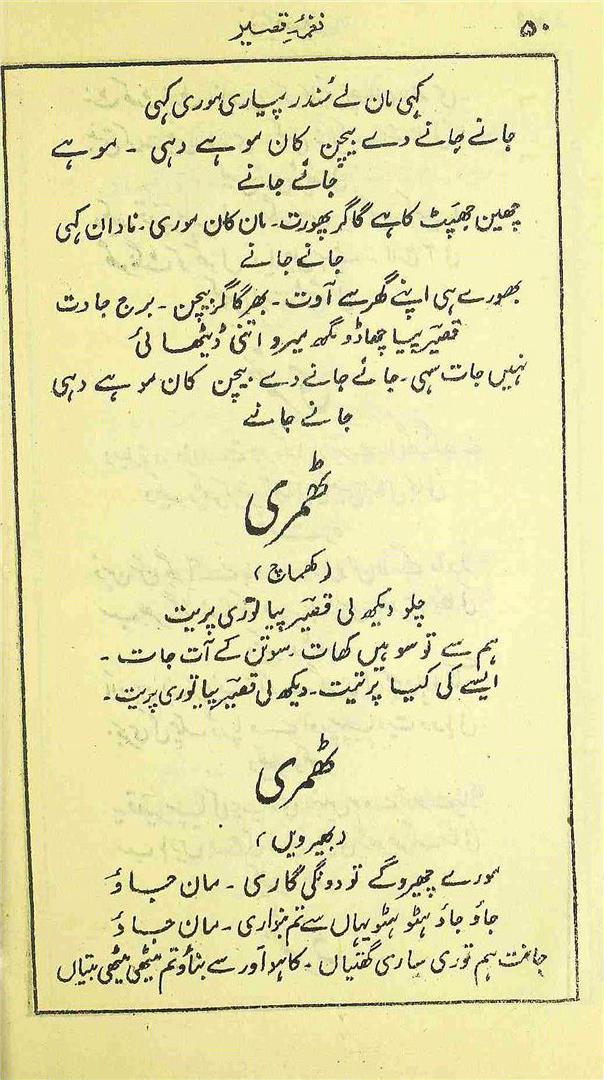 ۵۰
نغمۂ قصیر
کہی مان لے سُندر پیاری موری کہی
جانے جانے دے بیچن کان موہے دہی - موہے
جانے جانے
چھین جھپٹ کاہے گاگر پھورت - مان کان موری - نادان کہی
جانے جانے
بھورے ہی اپنے گھر سے آوت - بھر گاگر بیچن - برج جاوت
قصیؔر پیا چھاڈو نگھ میرو اتنی ڈیٹھائی
نہیں جات سہی - جانے جانے دے بیچن کان موہے دہی
جانے جانے
ٹھمری
(کھماچ)
چلو دیکھ لی قصیؔر پیا توری پریت
ہم سے تو سوہیں کھات، سوتن کے آت جات -
ایسے کی کیا پرتیت - دیکھ لی قصیؔر پیا توری پریت -
ٹھمری
(بھیرویں)
مورے چھیروگے تو دونگی گاری - مان جاؤ
جاؤ جاؤ ہٹو ہٹو یہاں سے تم ہزاری - مان جاؤ
جانت ہم توری ساری گھتیاں - کاہلا اور سے بناؤ تم میٹھی میٹھی بتیاں